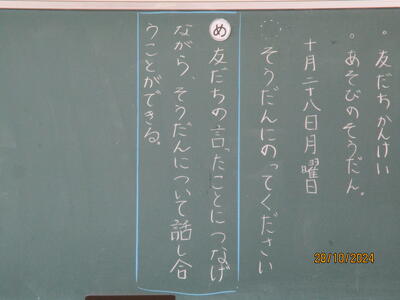 。友だちかんけい
。あそびのそうだん。
十月二十八日月曜日
そうだんにのってください
め 友だちの言ったことにつなげ
ながら、そうだんについて話し合
うことができる。
28/10/2024